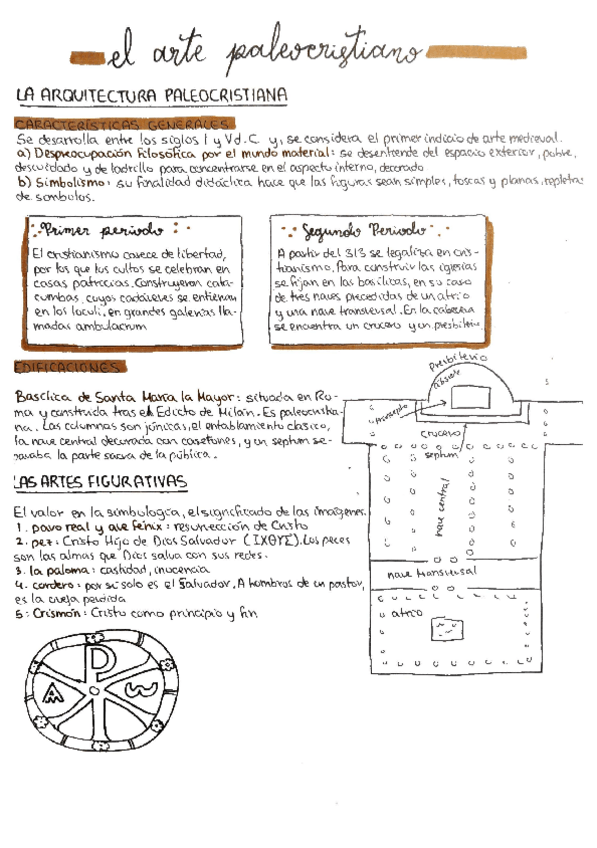 el arte paleocristiano
LA ARQUITECTURA PALEOCRISTIANA
CARACTERÍSTICAS GENERALES
Se desarrolla entre los siglos I y V d.C. y, se considera el primer indicio de arte medieval.
a) Despreocupación filosófica por el mundo material: se desentiende del espacio exterior, pobre,
descuidado y de ladrillo para concentrarse en el aspecto interno, decorado
b) Simbolismo: su finalidad didáctica hace que las figuras sean simples, toscas y planas, repletas
de símbolos.
Primer periodo:
El cristianismo carece de libertad,
por los que tus cultos se celebran en
casas patricias. Construyeron cata-
cumbas, cuyos cadáveres se entierran
en los loculi, en grandes galerías lla-
madas ambulacrum
Segundo Periodo
A partir del 313 se legaliza en cris-
tianismo. Para construir las iglesias
se fijan en las basílicas, en su caso
de tres naves precedidas de un atrio
y una nave transversal. En la cabecera
se encuentra un crucero y un presbiterio
EDIFICACIONES
Basílica de Santa María la Mayor: situada en Ro-
ma y construida tras el Edicto de Milán. Es paleocristia-
na. Las columnas son jónicas, el entablamiento clásico,
la nave central decorada con casetones, y un septum se-
paraba la parte sacra de la pública.
LAS ARTES FIGURATIVAS
El valor en la simbología, el significado de las imágenes.
1. pavo real y ave fénix: resurrección de Cristo
2. pez: Cristo Hijo de Dios Salvador (IXOYE). Los peces
son las almas que Dios salva con sus redes.
3. la paloma: castidad, inocencia
4. cordero: por si solo es el Salvador. A hombros de un pastor,
es la oveja perdida
5: Crismón: Cristo como principio y fin
Presbiterio
ábside
crucero
septum
nave central
nave transversal
atrio
P
A
ω